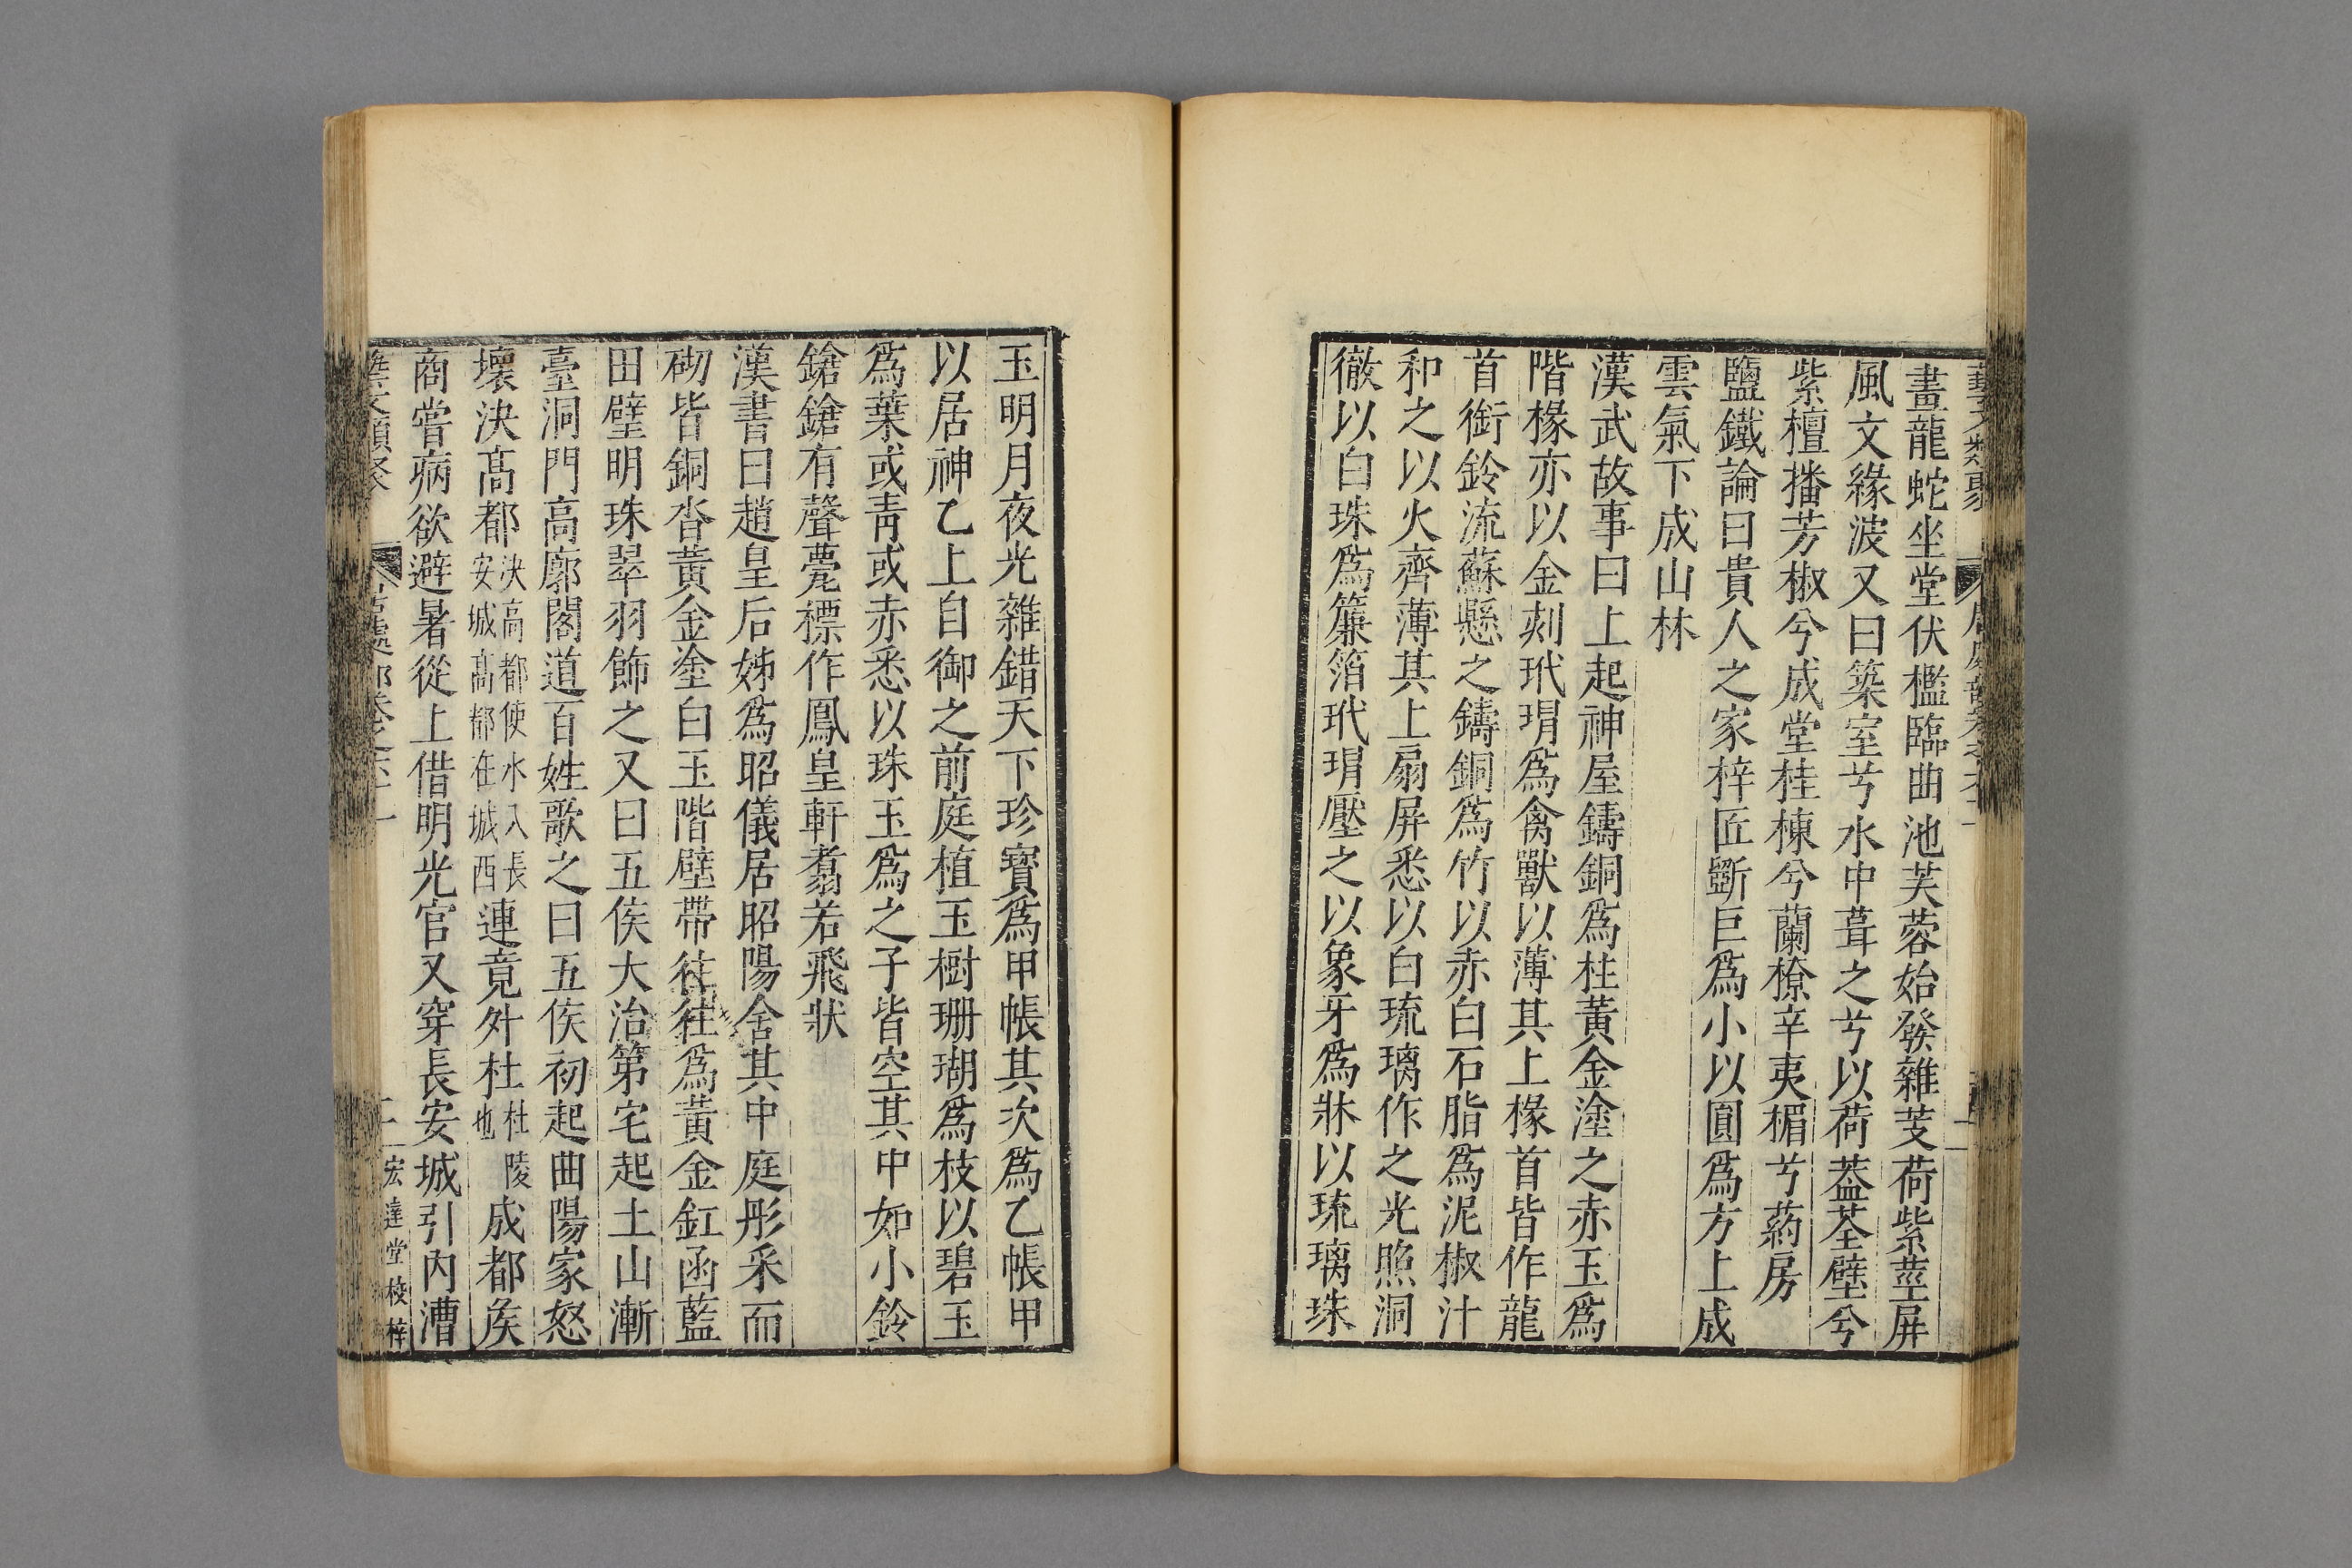 畫龍蛇坐堂伏檻臨曲池芙蓉始發雜芰荷紫莖屏
風文緣波又曰築室兮水中葺之兮以荷葢荃壁兮
紫檀播芳椒兮成堂桂棟兮蘭橑辛夷楣兮葯房
鹽鐵論曰貴人之家梓匠斵巨爲小以圓爲方上成
雲氣下成山林
漢武故事曰上起神屋鑄銅爲柱黃金塗之赤玉爲
階椽亦以金刻玳瑁爲禽獸以薄其上椽首皆作龍
首銜鈴流蘇懸之鑄銅爲竹以赤白石脂爲泥椒汁
和之以火齊薄其上扇屏悉以白琉璃作之光照洞
徹以白珠爲簾箔玳瑁壓之以象牙爲牀以琉璃珠
玉明月夜光雜錯天下珍寶爲甲帳其次爲乙帳甲
以居神乙上自御之前庭植玉樹珊瑚爲枝以碧玉
爲葉或靑或赤悉以珠玉爲之子皆空其中如小鈴
鎗鎗有聲甍標作鳳皇軒翥若飛狀
漢書曰趙皇后姊爲昭儀居昭陽舍其中庭彤采而
砌皆銅沓黃金塗白玉階壁帶往往爲黃金釭函藍
田璧明珠翠羽飾之又曰五侯大治第宅起土山漸
臺洞門高廓閣道百姓歌之曰五侯初起曲陽家怒
壞決髙都決高都使水入長安城髙都在城西連竟外杜杜陵也成都侯
商嘗病欲避暑從上借明光宮又穿長安城引內漕
宏達堂校梓